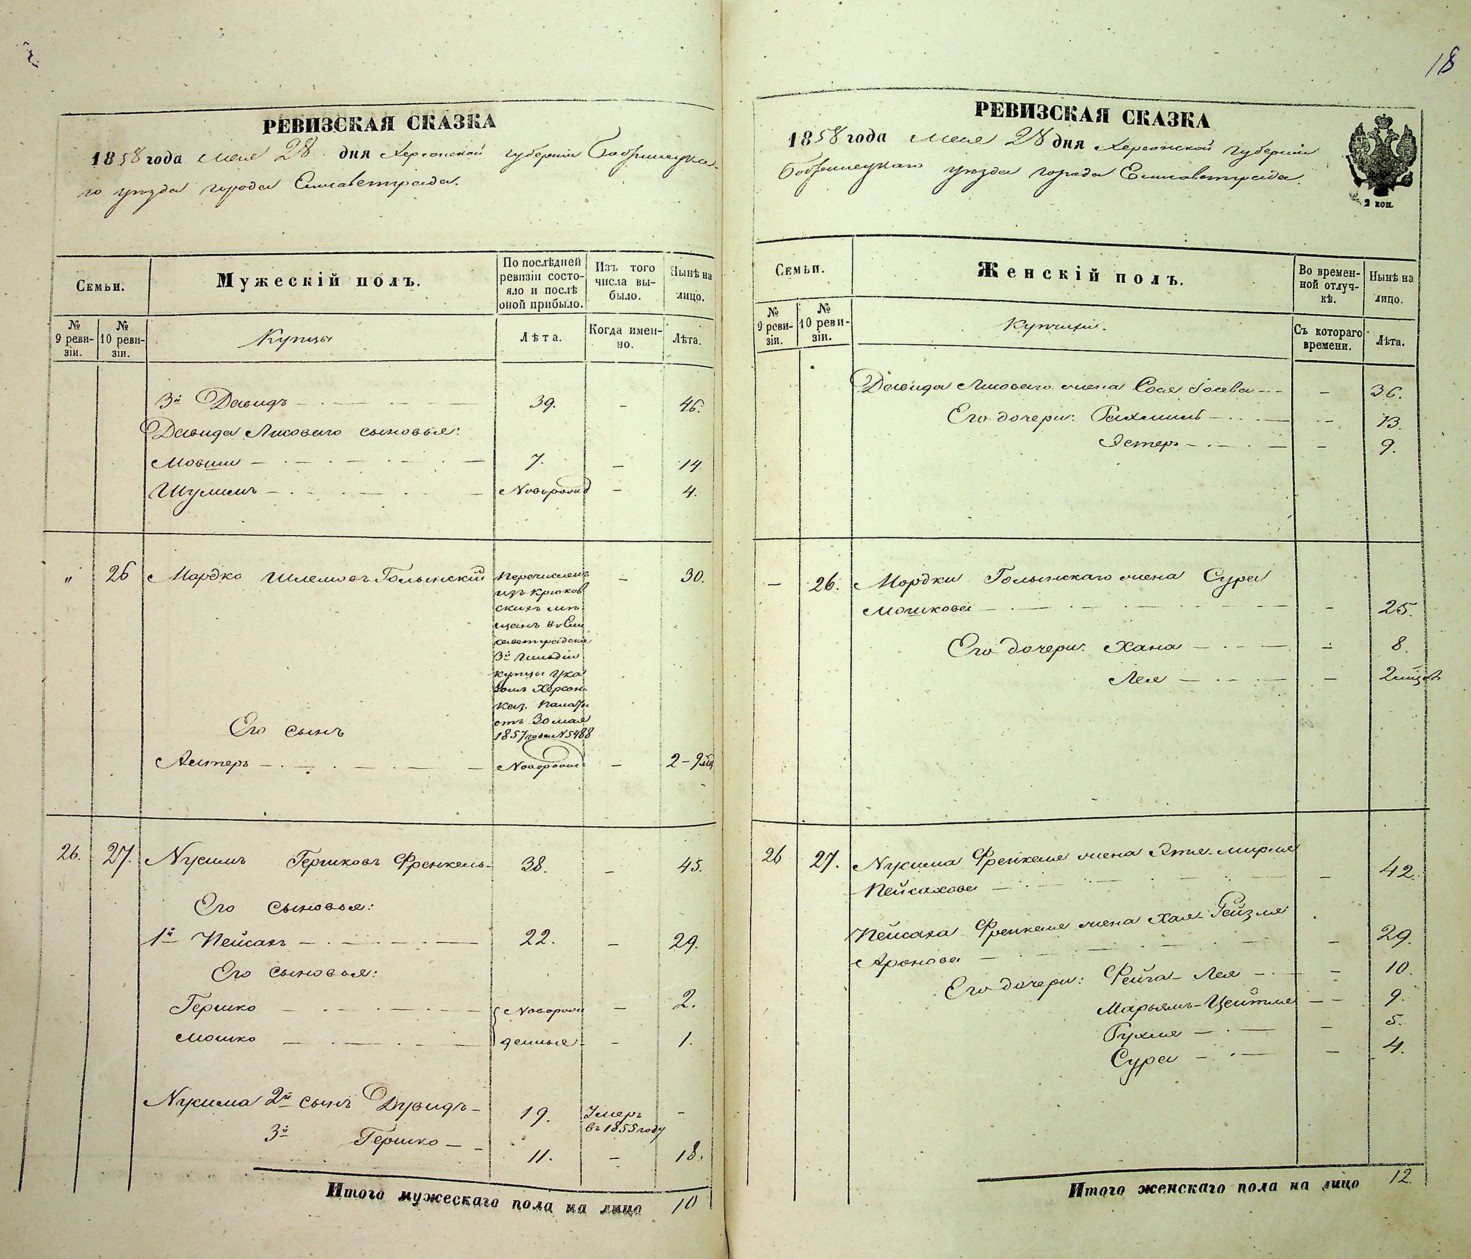 РЕВИЗСКАЯ СКАЗКА
1858 года мая 28 дня Херсонской губернии Бобринецка-
го уезда города Елисаветграда.
Семьи.
Мужескій полъ.
По послѣдней ревизіи состо-
яло и послѣ оной прибыло.
Изъ того числа вы-
было.
Нынѣ на лицо.
№ 9 реви-
зіи.
№ 10 реви-
зіи.
Купцы
Лѣта.
Когда имен-
но.
Лѣта.
3й Давидъ 39. – 46.
Давида сыновья:
Мовша 7. – 14
Шулимъ Новорожд – 4.
" 26 Мордко Шлемовъ Голынскій – 30.
Перечисленъ
изъ Крюков
скихъ мѣ
щанъ въ Ели
саветградскіе
3й Гильдіи
купцы Ука
зомъ Херсон.
Каз. Палаты
отъ 30 мая
1857 года №5488
Его сынъ
Новорожд –
26. 27. Нусимъ Гершковъ Френкель 38. – 45.
Его сыновья:
1й Пейсахъ 22. – 29.
Его сыновья:
Гершко Новорож – 2.
Мошко денные – 1.
Нусима 2й сынъ Дувидъ 19. Умеръ –
въ 1855 году
3й Гершко 11. – 18.
Итого мужескаго пола на лицо 10
18
РЕВИЗСКАЯ СКАЗКА
1858 года мая 28 дня Херсонской губерніи
Бобринецкаго уезда города Елисаветграда.
2 коп.
Семьи.
Женскій полъ.
Во времен-
ной отлуч-
кѣ.
Нынѣ на лицо.
№ 9 реви-
зіи.
№ 10 реви-
зіи.
Купчихи.
Съ котораго времени.
Лѣта.
Давида жена Сося – 36.
Его дочери: Рахлиль – 13.
Эстеръ – 9.
– 26. Мордки Голынскаго жена Сура
Мошкова – 25.
Его дочери: Хана – 8.
Лея –
26 27. Нусима Френкеля жена Этля-Мирля
Пейсахова – 42.
Пейсаха Френкеля жена Хая-Рейзля
Аронова – 29.
Его дочери: Фейга-Лея – 10.
Марьямъ-Цейтля – 9.
Рухля – 5.
Сура – 4.
Итого женскаго пола на лицо 12